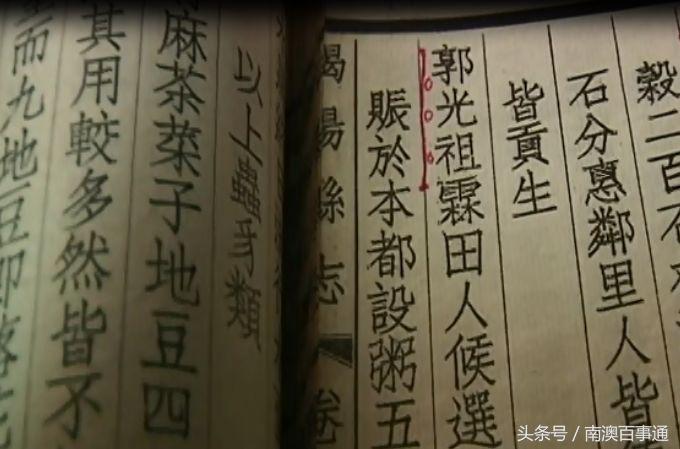 穀二百石
石分惠鄰里人皆
皆貢生
郭光祖霖田人候選
賑於本都設粥五
揭陽縣志 卷
以上蟲豸類
麻茶菜子地豆四
其用較多然皆不
而九地豆即落
头条号 / 南澳百事通